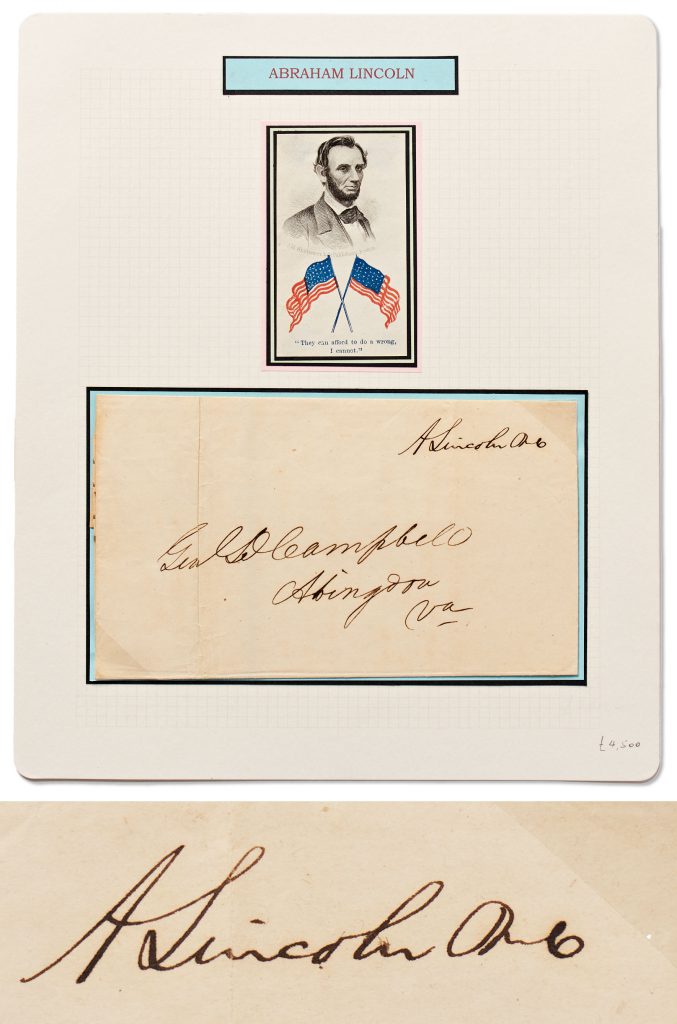 ABRAHAM LINCOLN
"They can afford to do a wrong,
I cannot."
A Lincoln MC
Campbell
Abingdon
Va
£4,500
A Lincoln MC